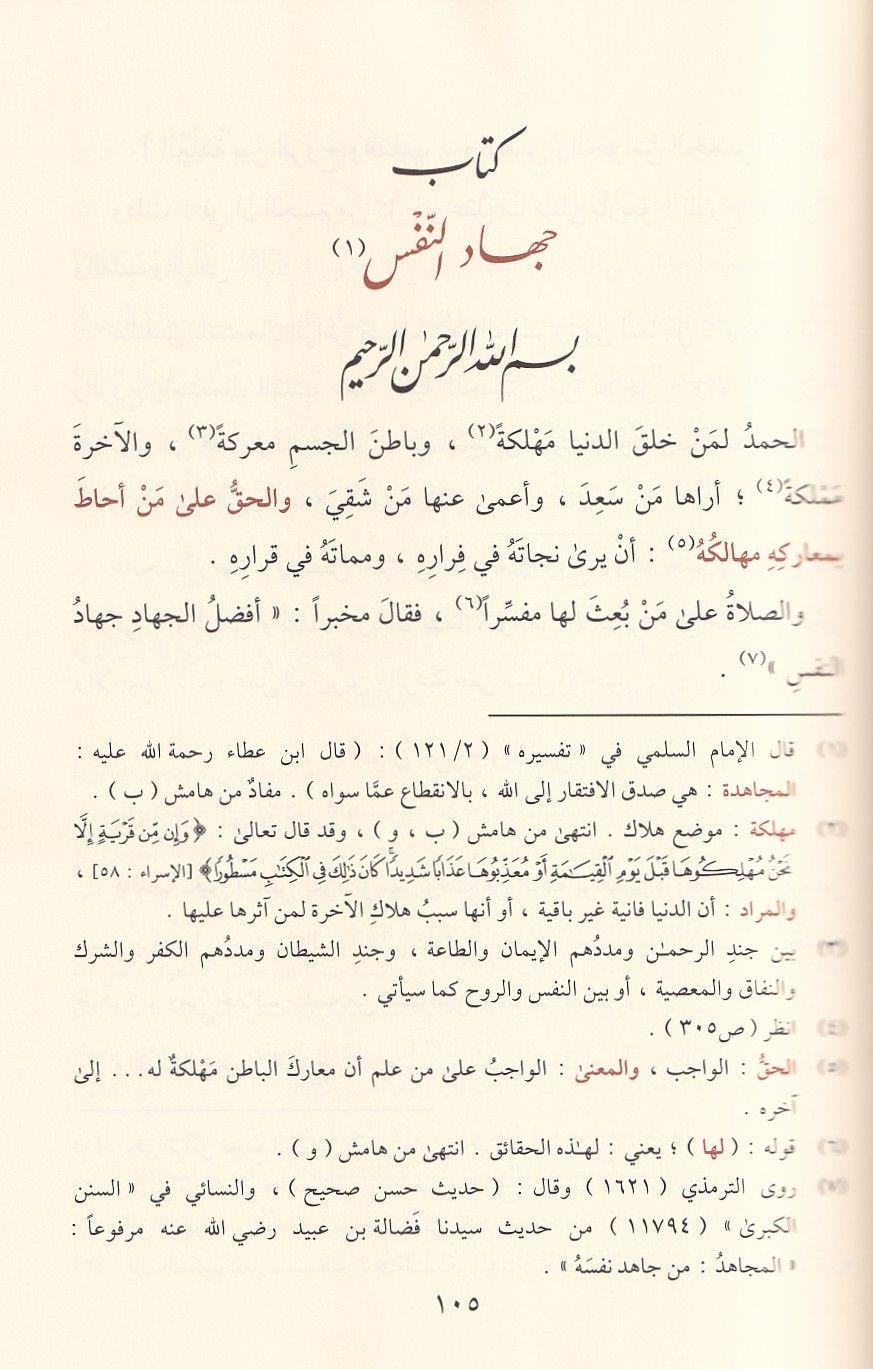 كتاب
جهاد النَّفْس (١)
بسم الله الرَّحمٰن الرَّحيم
الحمدُ لمَنْ خلقَ الدنيا مَهْلكةً(٢) ، وباطنَ الجسمِ معركةً(٣) ، والآخرةَ
مَمْلكةً(٤) ؛ أراها مَنْ سَعِدَ ، وأعمىٰ عنها مَنْ شَقِيَ ، والحقُّ علىٰ مَنْ أحاطَ
بمعاركِهِ مهالكُهُ(٥) : أنْ يرىٰ نجاتَهُ في فِرارِهِ ، ومماتَهُ في قرارِهِ .
والصلاةُ علىٰ مَنْ بُعِثَ لها مفسِّراً(٦) ، فقالَ مخبراً : « أفضلُ الجهادِ جهادُ
النفسِ »(٧) .
(١) قال الإمام السلمي في « تفسيره » ( ١٢١/٢ ) : ( قال ابن عطاء رحمة الله عليه :
المجاهدة : هي صدق الافتقار إلى الله ، بالانقطاع عمَّا سواه ) . مفادٌ من هامش ( ب ) .
(٢) مهلكة : موضع هلاك . انتهىٰ من هامش ( ب ، و ) ، وقد قال تعالىٰ : ﴿وَإِن مِّن قَرْيَةٍ إِلَّا
نَحْنُ مُهْلِكُوهَا قَبْلَ يَوْمِ الْقِيَـٰمَةِ أَوْ مُعَذِّبُوهَا عَذَابًا شَدِيدًا ۚ كَانَ ذَٰلِكَ فِى الْكِتَـٰبِ مَسْطُورًا﴾ [الإسراء : ٥٨] ،
والمراد : أن الدنيا فانية غير باقية ، أو أنها سببُ هلاكِ الآخرة لمن آثرها عليها .
(٣) بين جندِ الرحمـٰن ومددُهم الإيمان والطاعة ، وجندِ الشيطان ومددُهم الكفر والشرك
والنفاق والمعصية ، أو بين النفس والروح كما سيأتي .
(٤) انظر ( ص٣٠٥ ) .
(٥) الحقُّ : الواجب ، والمعنىٰ : الواجبُ علىٰ من علم أن معاركَ الباطن مَهْلكةٌ له . . . إلىٰ
آخره .
(٦) قوله : ( لها ) ؛ يعني : لهـٰذه الحقائق . انتهىٰ من هامش ( و ) .
(٧) روى الترمذي ( ١٦٢١ ) وقال : ( حديث حسن صحيح ) ، والنسائي في « السنن
الكبرىٰ » ( ١١٧٩٤ ) من حديث سيدنا فَضالة بن عبيد رضي الله عنه مرفوعاً :
« المجاهدُ : من جاهد نفسَهُ » .
١٠٥